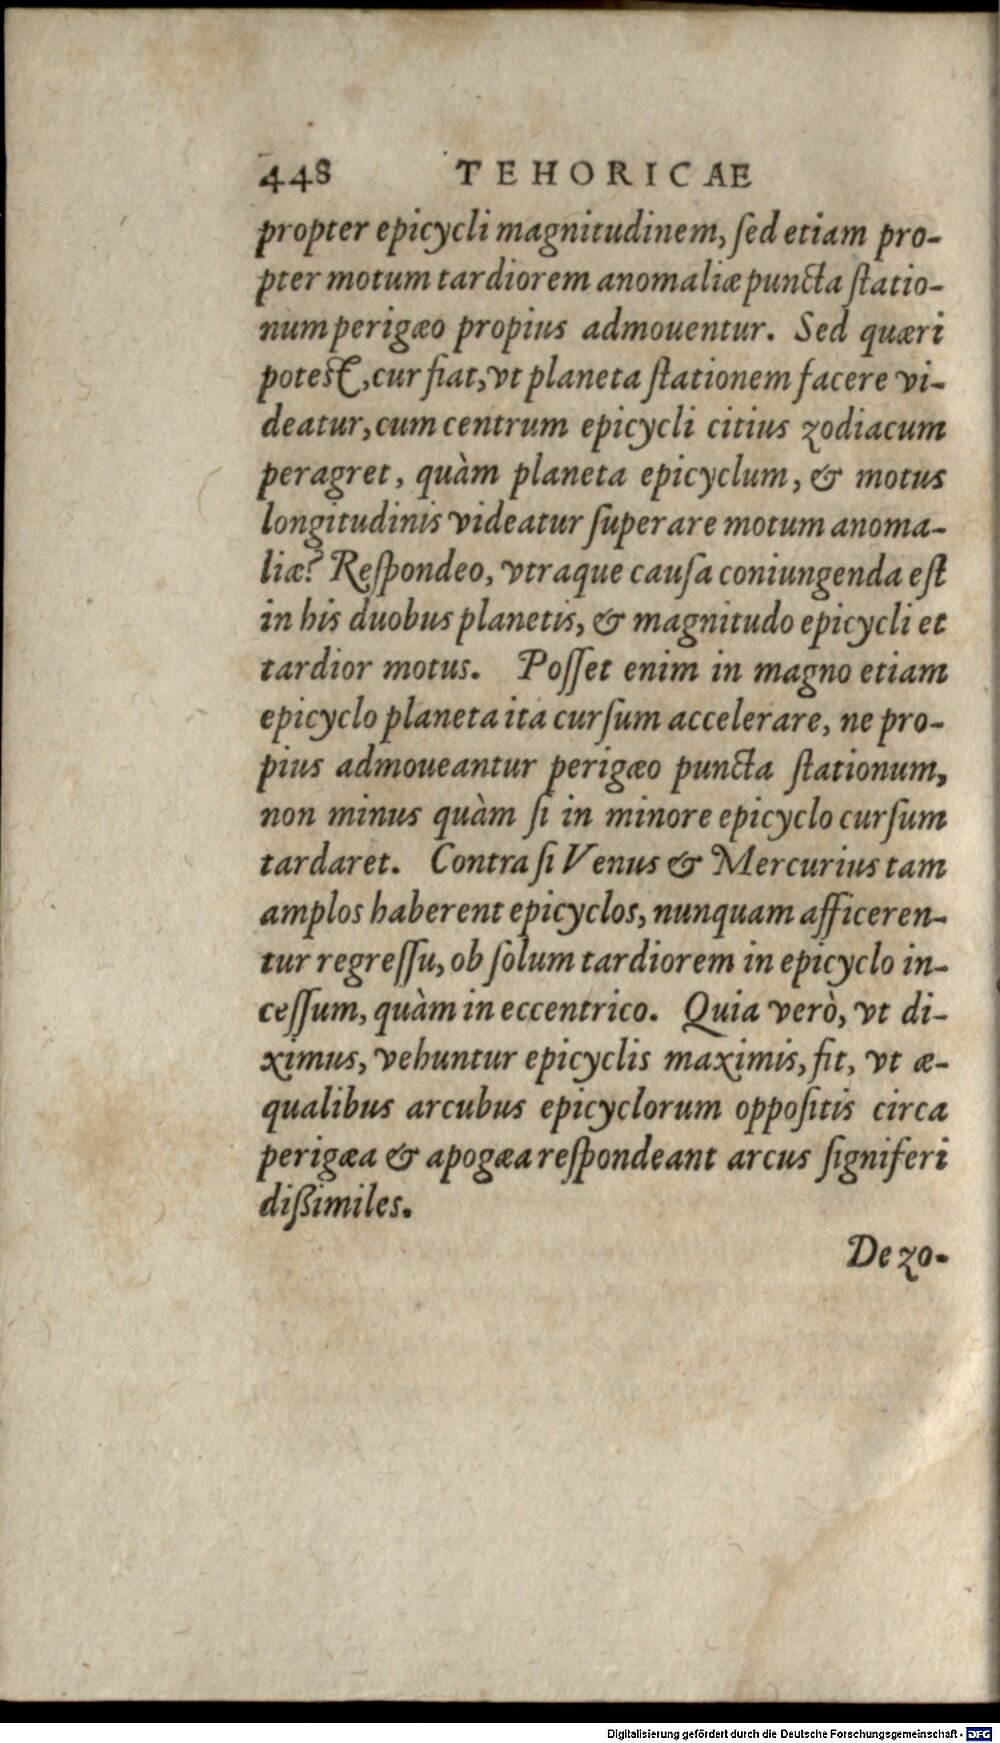 448 TEHORICAE
propter epicycli magnitudinem, ſed etiam pro-
pter motum tardiorem anomaliæ puncta ſtatio-
num perigæo propius admouentur. Sed quæri
poteſt, cur fiat, vt planeta ſtationem facere vi-
deatur, cum centrum epicycli citius zodiacum
peragret, quàm planeta epicyclum, & motus
longitudinis videatur ſuperare motum anoma-
liæ? Reſpondeo, vtraque cauſa coniungenda eſt
in his duobus planetis, & magnitudo epicycli et
tardior motus. Poſſet enim in magno etiam
epicyclo planeta ita curſum accelerare, ne pro-
pius admoueantur perigæo puncta ſtationum,
non minus quàm ſi in minore epicyclo curſum
tardaret. Contra ſi Venus & Mercurius tam
amplos haberent epicyclos, nunquam afficeren-
tur regreſſu, ob ſolum tardiorem in epicyclo in-
ceſſum, quàm in eccentrico. Quia verò, vt di-
ximus, vehuntur epicyclis maximis, fit, vt æ-
qualibus arcubus epicyclorum oppoſitis circa
perigæa & apogæa reſpondeant arcus ſigniferi
dißimiles.
De zo-
Digitalisierung gefördert durch die Deutsche Forschungsgemeinschaft - DFG